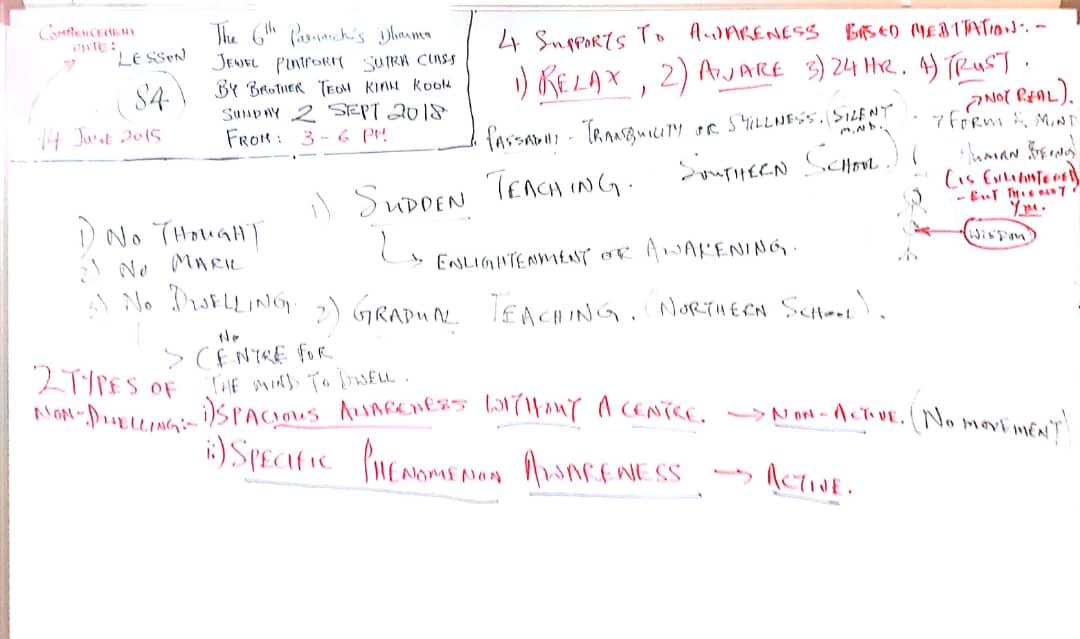 COMMENCEMENT
DATE:
14 JUNE 2015
LESSON
(84)
The 6th Patriarch's Dharma
JEWEL PLATFORM SUTRA CLASS
BY BROTHER TEOH KIAN KOON
SUNDAY 2 SEPT 2018
FROM: 3 - 6 PM
4 SUPPORTS TO AWARENESS BASED MEDITATION: -
1) RELAX, 2) AWARE 3) 24 HR. 4) TRUST.
PASSADHI - TRANQUILITY OR STILLNESS. (SILENT
MIND.
(NOT REAL).
? FORM & MIND
HUMAN BEING
(IS ENLIGHTENED)
- BUT THIS NOT
YOU.
WISDOM
1) SUDDEN TEACHING. SOUTHERN SCHOOL.)
↳ ENLIGHTENMENT OR AWAKENING.
1) NO THOUGHT
2) NO MARK
3) NO DWELLING.
2) GRADUAL TEACHING. (NORTHERN SCHOOL).
> NO CENTRE FOR
THE MIND TO DWELL.
2 TYPES OF
NON-DWELLING:- i) SPACIOUS AWARENESS WITHOUT A CENTRE. → NON-ACTIVE. (NO MOVEMENT)
ii) SPECIFIC PHENOMENON AWARENESS → ACTIVE.